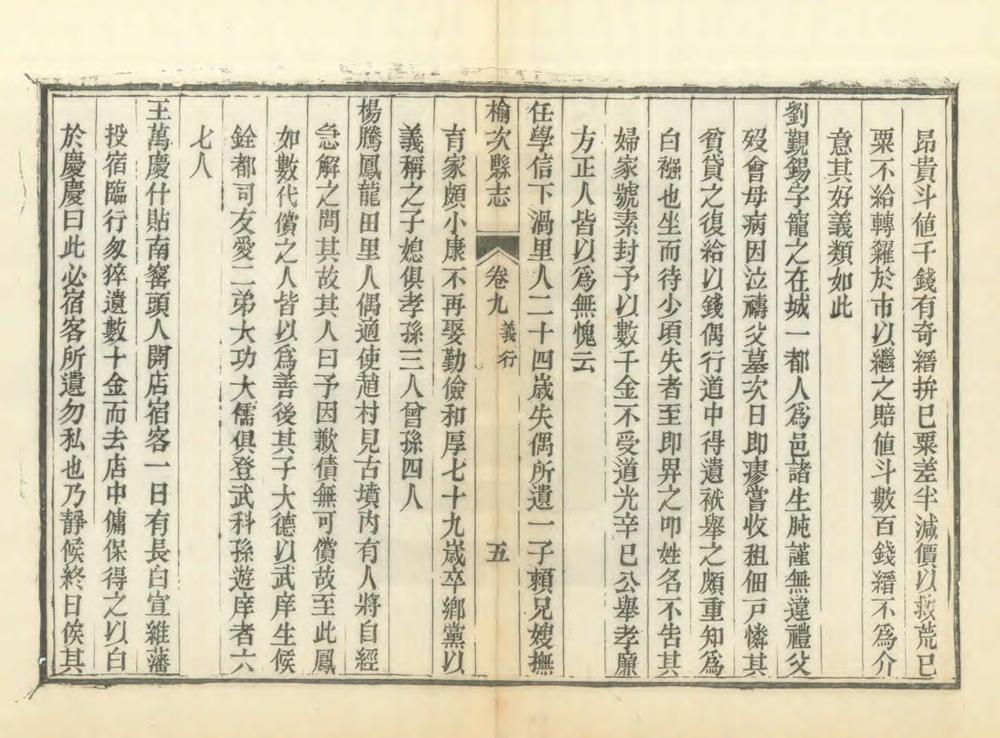 昂貴斗値千錢有奇縉拚巳粟差半減價以救荒巳
粟不給轉糴於市以繼之賠値斗數百錢縉不爲介
意其好義類如此
劉覲錫字龍之在城一都人爲邑諸生肫謹無違禮父
歿會母病因泣禱父墓次日即瘳嘗收租佃戸憐其
貧貸之復給以錢偶行道中得遺袱舉之頗重知爲
白鏹也坐而待少頃失者至即畀之叩姓名不告其
婦家號素封予以數千金不受道光辛巳公舉孝廉
方正人皆以爲無愧云
任學信下渦里人二十四歲失偶所遺一子賴兄嫂撫
榆次縣志 卷九 義行 五
育家頗小康不再娶勤儉和厚七十九歲卒鄉黨以
義稱之子媳俱孝孫三人曾孫四人
楊騰鳳龍田里人偶適使趙村見古墳內有人將自經
急解之問其故其人曰予因歉債無可償故至此鳳
如數代償之人皆以爲善後其子大德以武庠生候
銓都司友愛二弟大功大儒俱登武科孫遊庠者六
七人
王萬慶什貼南窰頭人開店宿客一日有長白宣維藩
投宿臨行匆猝遺數十金而去店中傭保得之以白
於慶慶曰此必宿客所遺勿私也乃靜候終日俟其